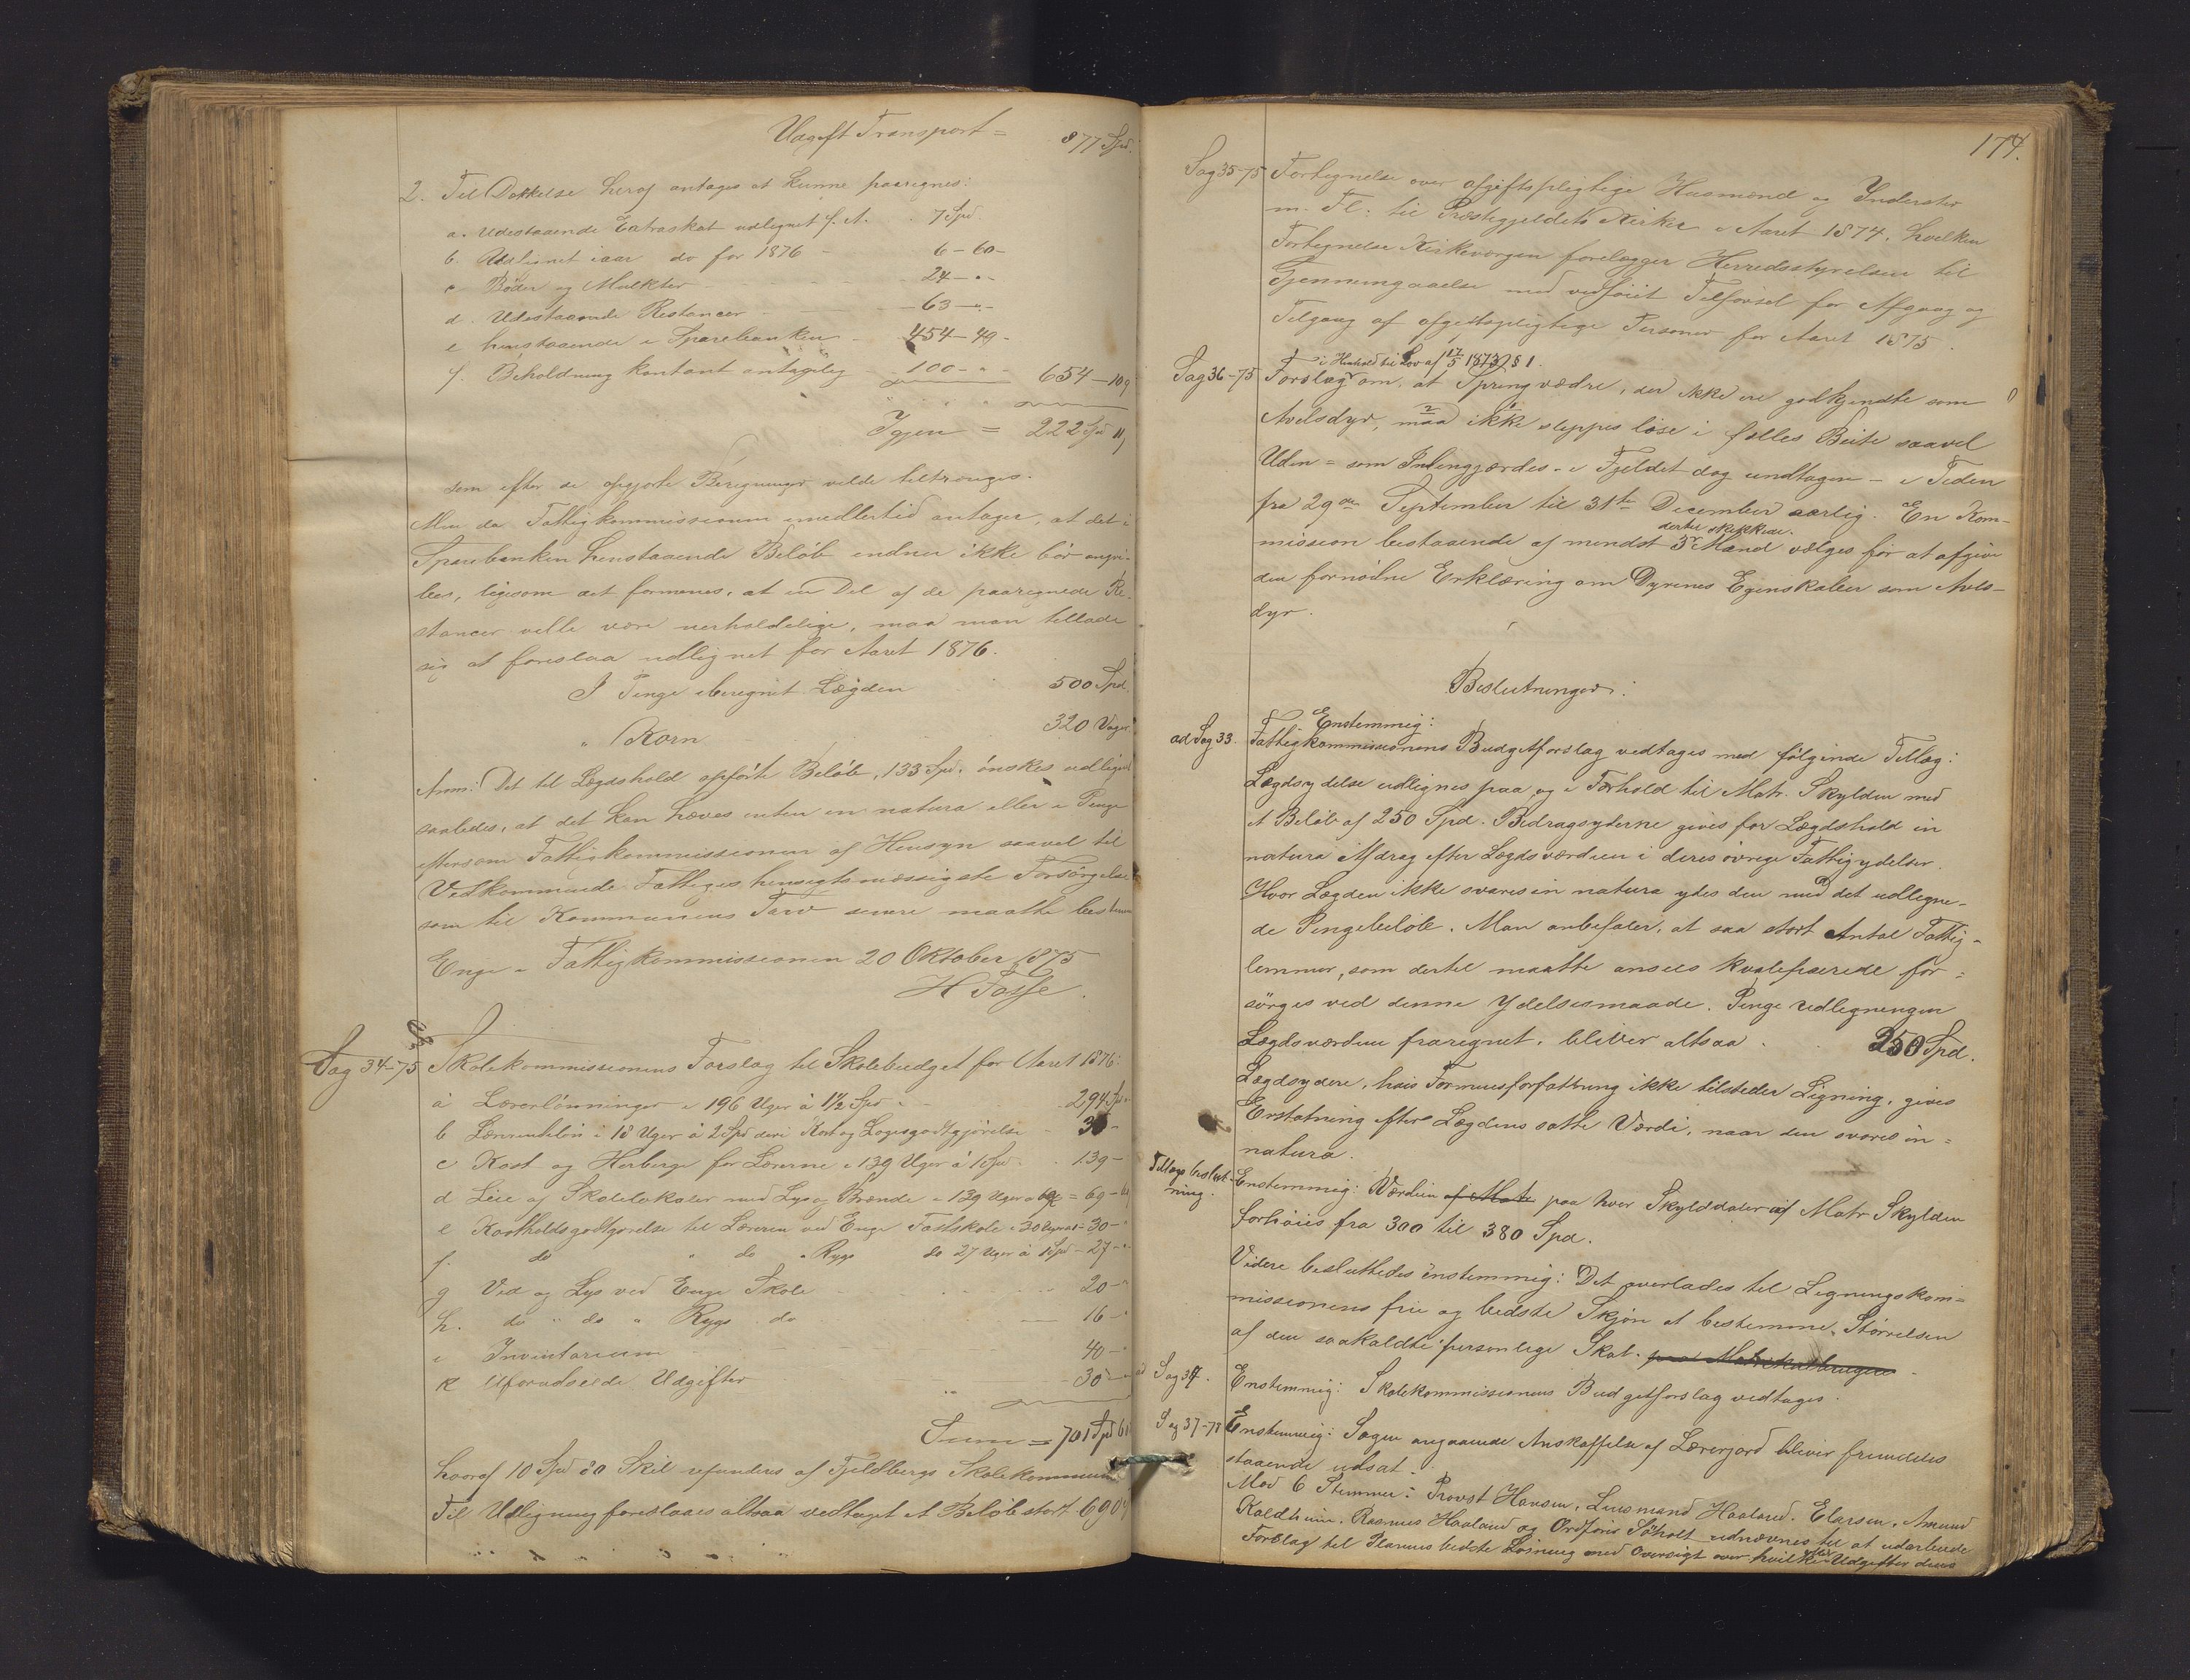 Udgift Transport = 877 Spd.
2. Til Dækkelse heraf antages at kunne paaregnes:
a. Udestaaende Extraskat udlignet f. A. 7 Spd.
b. Udlignet iaar do for 1876 - 6-60-
c Bøder og Mulkter 24-"-
d. Udestaaende Restancer 63-"-
e henstaaende i Sparebanken 454-49-
f. Beholdning kontant antagelig 100-"- 654-109
Igjen = 222 Spd 11
som efter de opgjorte Beregninger vilde tiltrænges.
Men da Fattigkommissionen imedlertid antager, at det i
Sparebanken henstaaende Beløb endnu ikke bør angri-
bes, ligesom det formenes, at en Del af de paaregnede Re-
stancer ville være uerholdelige, maa man tillade
sig at foreslaa udlignet for Aaret 1876.
I Penge iberegnet Lægden 500 Spd.
" Korn 320 Vager
Anm: Det til Lægdshold opførte Beløb, 133 Spd. ønskes udlignet
saaledes, at det kan hæves enten in natura eller i Penge
eftersom Fattigkommissionen af Hensyn saavel til
Vedkommende Fattiges hensigtsmæssigste Forsørgelse
som til Kommunens Tarv senere maatte bestemme
Enge i Fattigkommissionen 20 Oktober 1875
H Fosse.
Sag 34-75 Skolekommissionens Forslag til Skolebudget for Aaret 1876:
a Lærerlønninger i 196 Uger à 1½ Spd 294 Spd
b Lærerindeløn i 18 Uger à 2 Spd deri Kost og Logisgodtgjørelse - 36-
c Kost og Herberge for Lærerne i 139 Uger à 1 Spd. 139-
d Leie af Skolelokaler med Lys og Brænde i 139 Uger a = 69-
e Kostholdsgodtgjørelse til Læreren ved Enge Fastskole i 30 Uger a 1 - 30-"
f. do " do " Ryge do 27 Uger à 1 Spd - 27-"
g Ved og Lys ved Enge Skole 20-"
h. do " do " Ryge do 16-"
i Inventarium 40-"
k Uforudseede Udgifter 30
Sum = 701 Spd
hvoraf 10 Spd 80 Skil refunderes af Fjeldbergs Skolekommune
Til Udligning foreslaaes altsaa vedtaget et Beløb stort 690
174.
Sag 35-75 Fortegnelse over afgiftspligtige Husmænd og Inderster
m. Fl. til Præstegjeldets Kirker i Aaret 1874, hvilken
Fortegnelse Kirkevergen forelægger Herredsstyrelsen til
Gjennemgaaelse med vedføiet Tilførsel for Afgang og
Tilgang af afgiftspligtige Personer for Aaret 1875.
i Henhold til Lov af 17/5 1873 § 1.
Sag 36-75 Forslag om, at Springvædre, der ikke ere godkjendte som
Avelsdyr, maa ikke slippes løse i fælles Beite saavel
Uden- som Indengjærdes - i Fjeldet dog undtagen - i Tiden
fra 29de September til 31te December aarlig. En Kom-
dertil skikkede
mission bestaaende af mindst 3 Mænd vælges for at afgive
den fornødne Erklæring om Dyrenes Egenskaber som Avels-
dyr.
Beslutninger:
Enstemmig:
ad Sag 33. Fattigkommissionens Budgetforslag vedtages med følgende Tillæg:
Lægdsydelse udlignes paa og i Forhold til Matr. Skylden med
et Beløb af 250 Spd. Bidragsyderne gives for Lægdshold in
natura Afdrag efter Lægdsværdien i deres øvrige Fattigydelser.
Hvor Lægden ikke svares in natura ydes den med det udlegne-
de Pengebeløb. Man anbefaler, at saa stort Antal Fattig-
lemmer, som dertil maatte ansees kvalificerede for-
sørges ved denne Ydelsesmaade. Penge udligningen
Lægdsværdien fraregnet, bliver altsaa 250 Spd.
Lægdsydere, hvis Formuesforfatning ikke tilsteder Ligning, gives
Erstatning efter Lægdens satte Værdi, naar den svares in
natura.
Tillægsbeslutning. Enstemmig: Værdien af Matr paa hver Skylddaler af Matr Skylden
forhøies fra 300 til 380 Spd.
Videre besluttedes enstemmig: Det overlades til Ligningskom-
missionens frie og bedste Skjøn at bestemme Størrelsen
af den saakaldte personlige Skat. paa Matrikulbrugene
ad Sag 34. Enstemmig: Skolekommissionens Budgetforslag vedtages.
Sag 37-75 Enstemmig: Sagen angaaende Anskaffelse af Lærerjord bliver fremdeles
staaende udsat.
Mod 6 Stemmer: Provst Hansen, Lensmand Haaland, E Larsen, Amund
Kaldheim, Rasmus Haaland og Ordfører Søholt udnævnes til at udarbeide
Forslag til Planens bedste Løsning med Oversigt over hvilke Udgifter dens